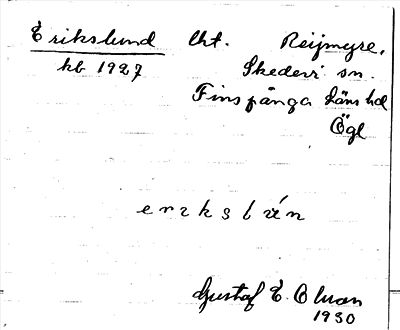 Erikslund lht. Reijmyre,
kb 1927 Skedevi sn.
Finspånga läns hd
Ögl
erikslún
Gustaf E. Olson
1930